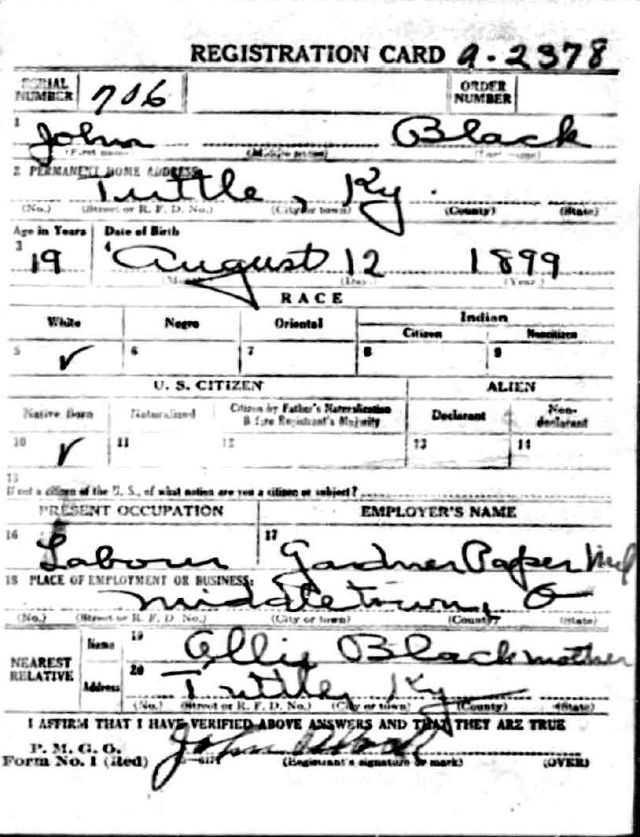 REGISTRATION CARD A-2378
SERIAL NUMBER 706 ORDER NUMBER
1 John Black
(First name) (Middle name) (Last name)
2 PERMANENT HOME ADDRESS:
Tuttle, Ky.
(No.) (Street or R. F. D. No.) (City or town) (County) (State)
Age in Years Date of Birth
3 19 4 August 12 1899
(Day.) (Year.)
RACE
White Negro Oriental Indian
Citizen Noncitizen
5 ✓ 6 7 8 9
U. S. CITIZEN ALIEN
Native Born Naturalized Citizen by Father's Naturalization Before Registrant's Majority Declarant Non-declarant
10 ✓ 11 12 13 14
15
If not a citizen of the U. S., of what nation are you a citizen or subject?
PRESENT OCCUPATION EMPLOYER'S NAME
16 Labour 17 Gardner Paper
18 PLACE OF EMPLOYMENT OR BUSINESS:
Middletown, O
(No.) (Street or R. F. D. No.) (City or town) (County) (State)
NEAREST RELATIVE Name 19 Ollie Black mother
Address 20 Tuttle, Ky
(No.) (Street or R. F. D. No.) (City or town) (County) (State)
I AFFIRM THAT I HAVE VERIFIED ABOVE ANSWERS AND THAT THEY ARE TRUE
P. M. G. O.
Form No. 1 (Red) John Black
(Registrant's signature or mark) (OVER)